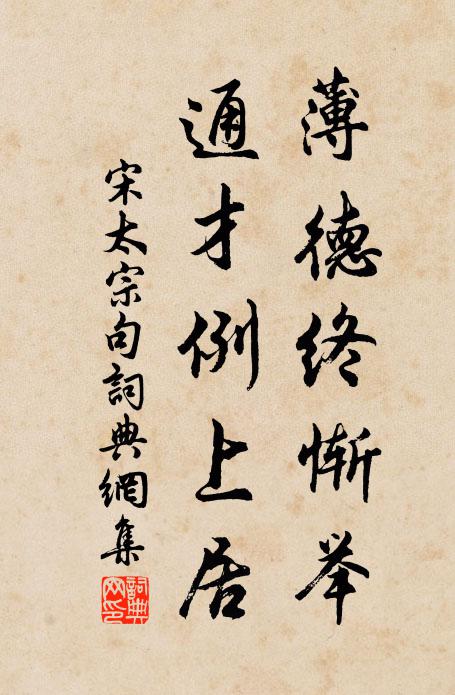 薄德终惭举
通才例上居
宋太宗句詞典網集
詞典网印